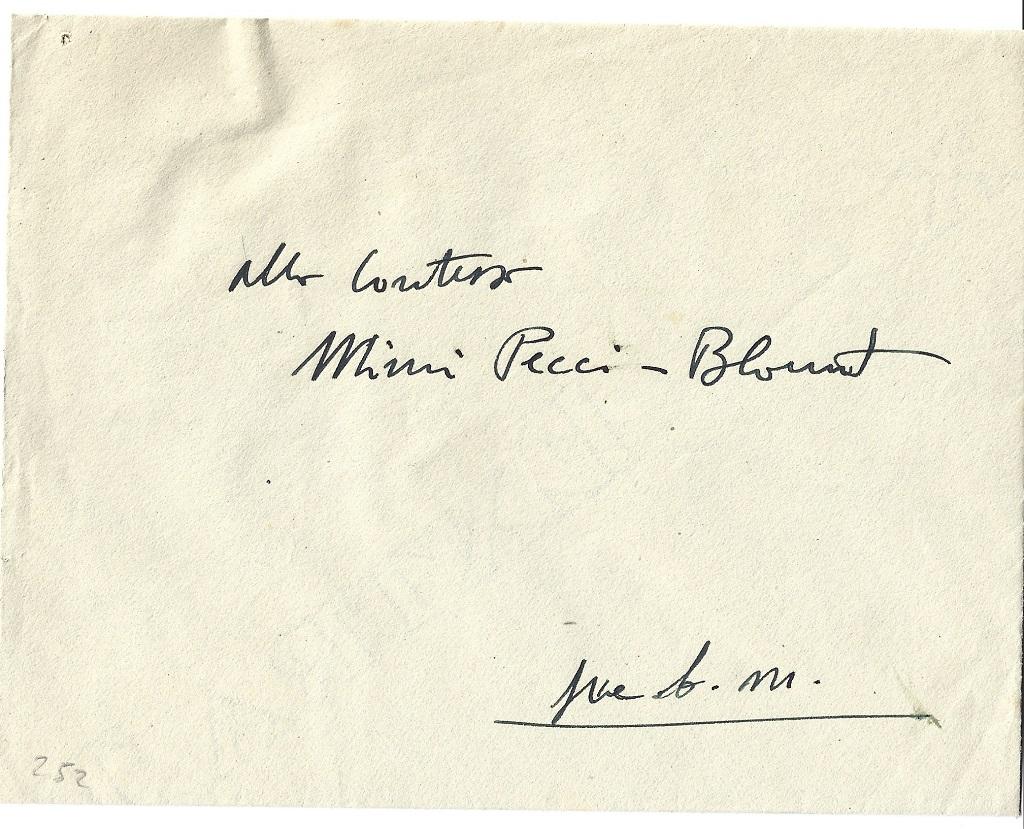 alla Contessa
Mimi Pecci - Blount
s. m.
252